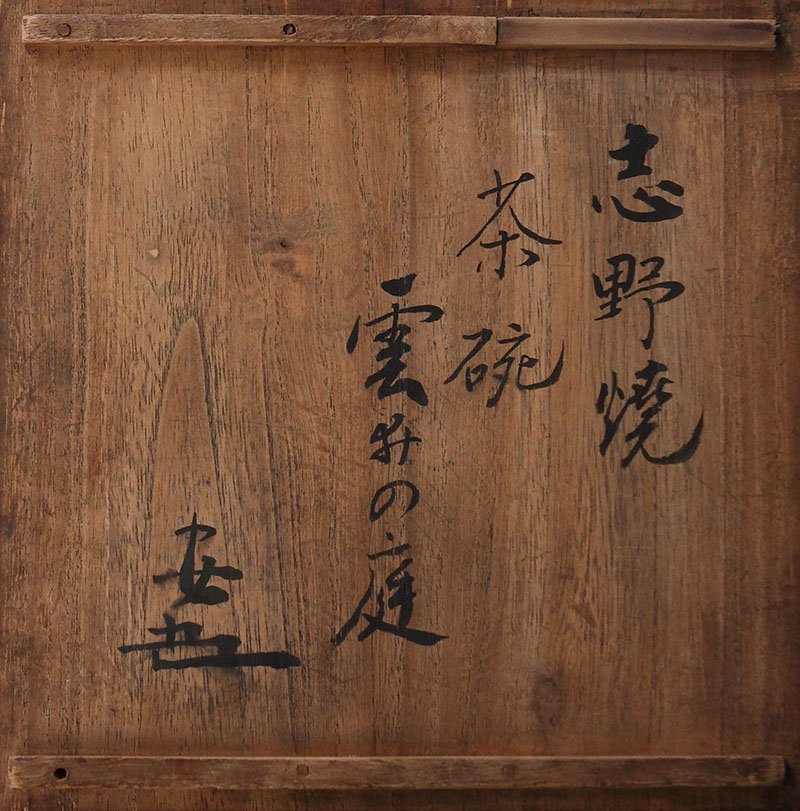 志野燒
茶碗
雲井の庭
安